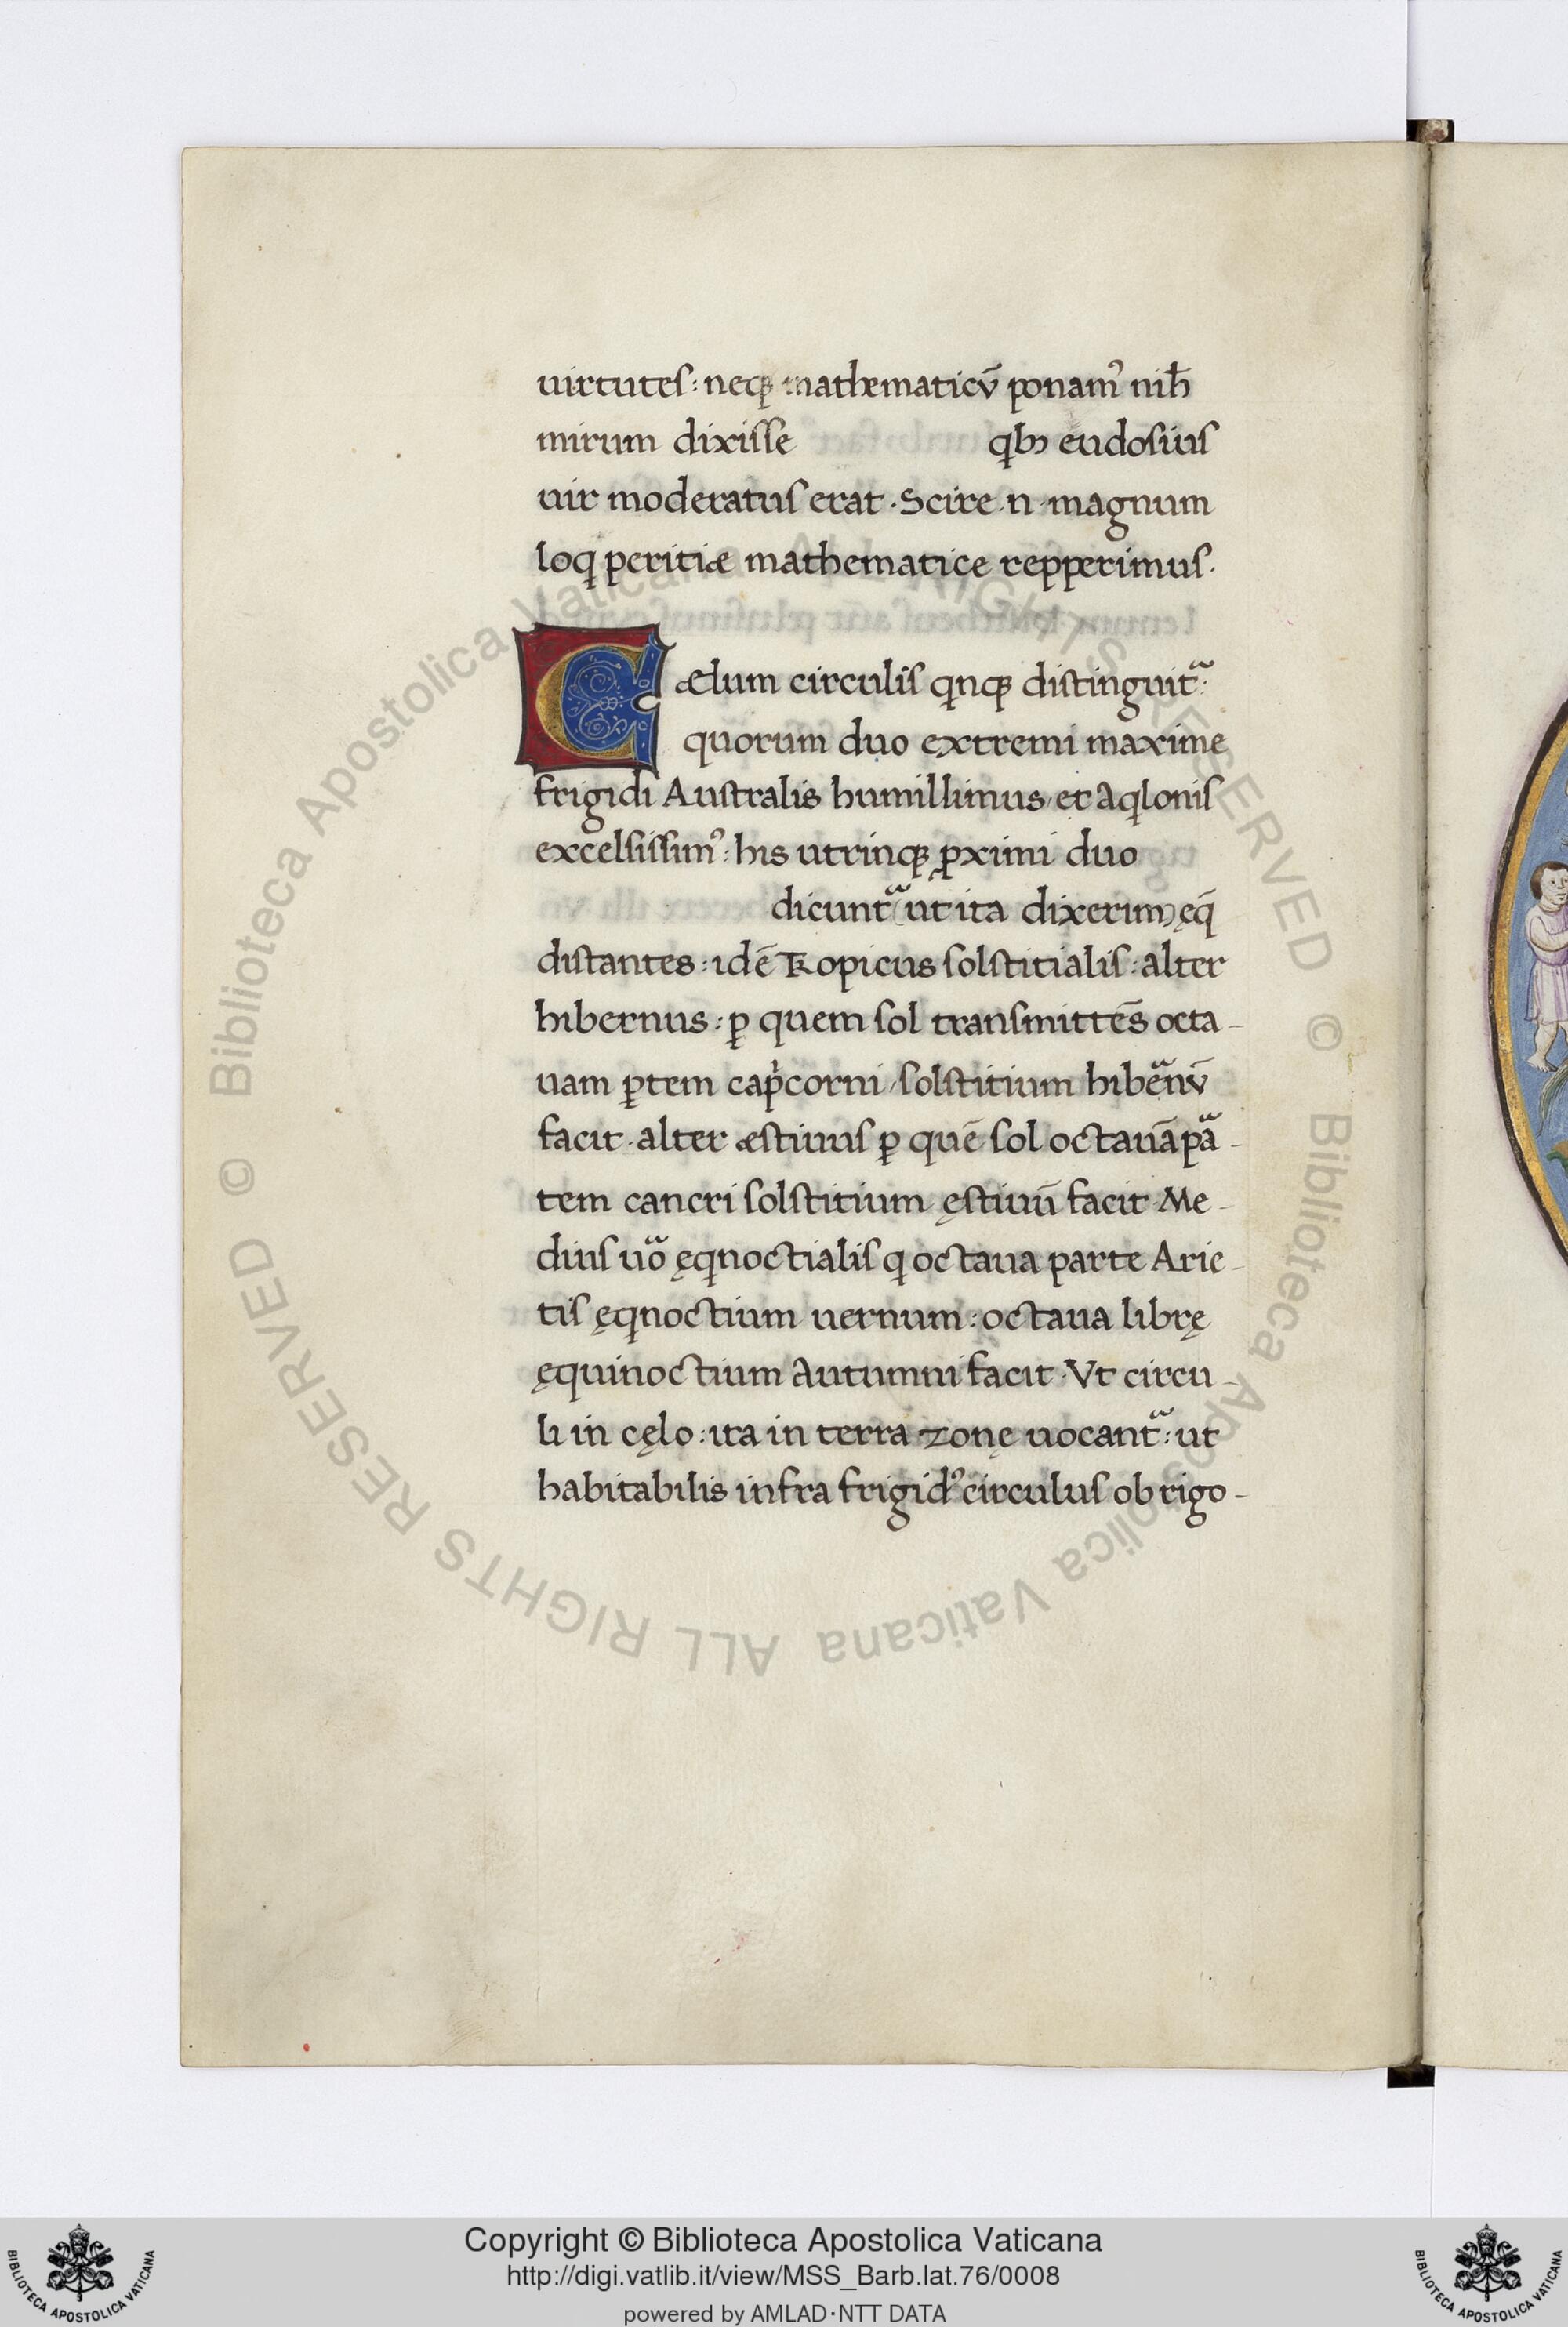 uirtutes: neq; mathematicũ ponam᾿ nih̄
mirum dixisse qb; eudosius
uir moderatus erat · Scire · n · magnum
loq peritiæ mathematice repperimus.
Cælum circulis qnq; distinguitᷓ:
quorum duo extremi maxime
frigidi Australis humillimus et Aqlonis
excelsissim᾿: his utrinq; ꝓximi duo
dicuntᷓ (ut ita dixerim) ęq̄
distantes: idē Tropicus solstitialis: alter
hibernus: ꝑ quem sol transmittēs octa-
uam ꝑtem capͥcorni, solstitium hibeᷓnũ
facit. alter æstiuus ꝑ quē sol octauā paᷓ-
tem cancri solstitium ęstiuū facit Me-
dius uoᷓ ęqnoctialis q octaua parte Arie-
tis ęqnoctium uernum: octaua librę
ęquinoctium Autumni facit. Vt circu-
li in cęlo: ita in terra zonę uocantᷓ: ut
habitabilis infra frigid᾿ circulus ob rigo-
© Biblioteca Apostolica Vaticana ALL RIGHTS RESERVED
© Biblioteca Apostolica Vaticana ALL RIGHTS RESERVED
Copyright © Biblioteca Apostolica Vaticana
http://digi.vatlib.it/view/MSS_Barb.lat.76/0008
powered by AMLAD·NTT DATA
BIBLIOTECA APOSTOLICA VATICANA
BIBLIOTECA APOSTOLICA VATICANA